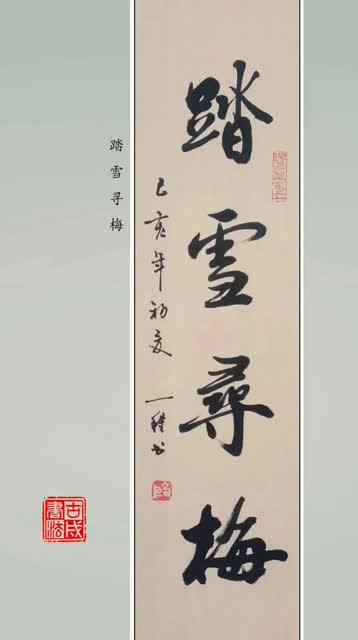 踏雪尋梅
己亥年初夏
一鐸书
踏雪寻梅
古成書法